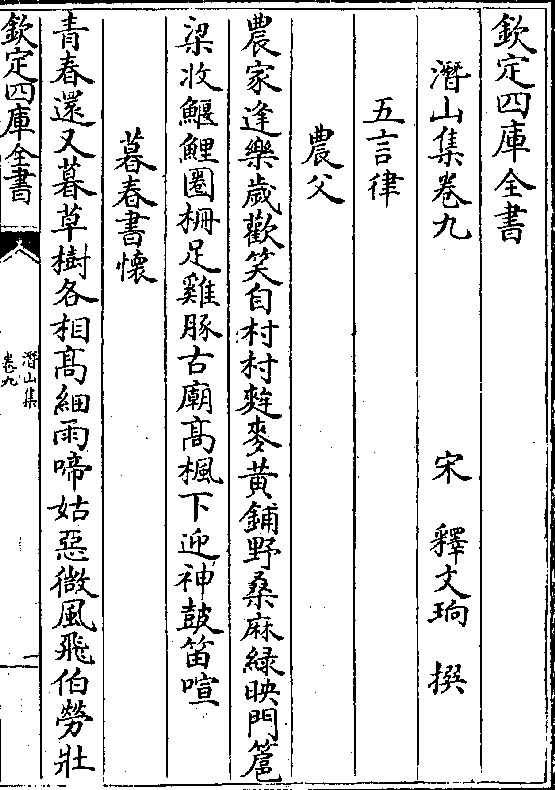 欽定四庫全書
潛山集卷九
宋 釋文珦 撰
五言律
農父
農家逢樂歲歡笑自村村麰麥黃鋪野桑麻緑映門篱
梁收鰋鯉圈柵足雞豚古廟髙楓下迎神鼓笛喧
暮春書懷
青春還又暮草樹各相髙細雨啼姑惡微風飛伯勞壮
欽定四庫全書
潛山集
卷九